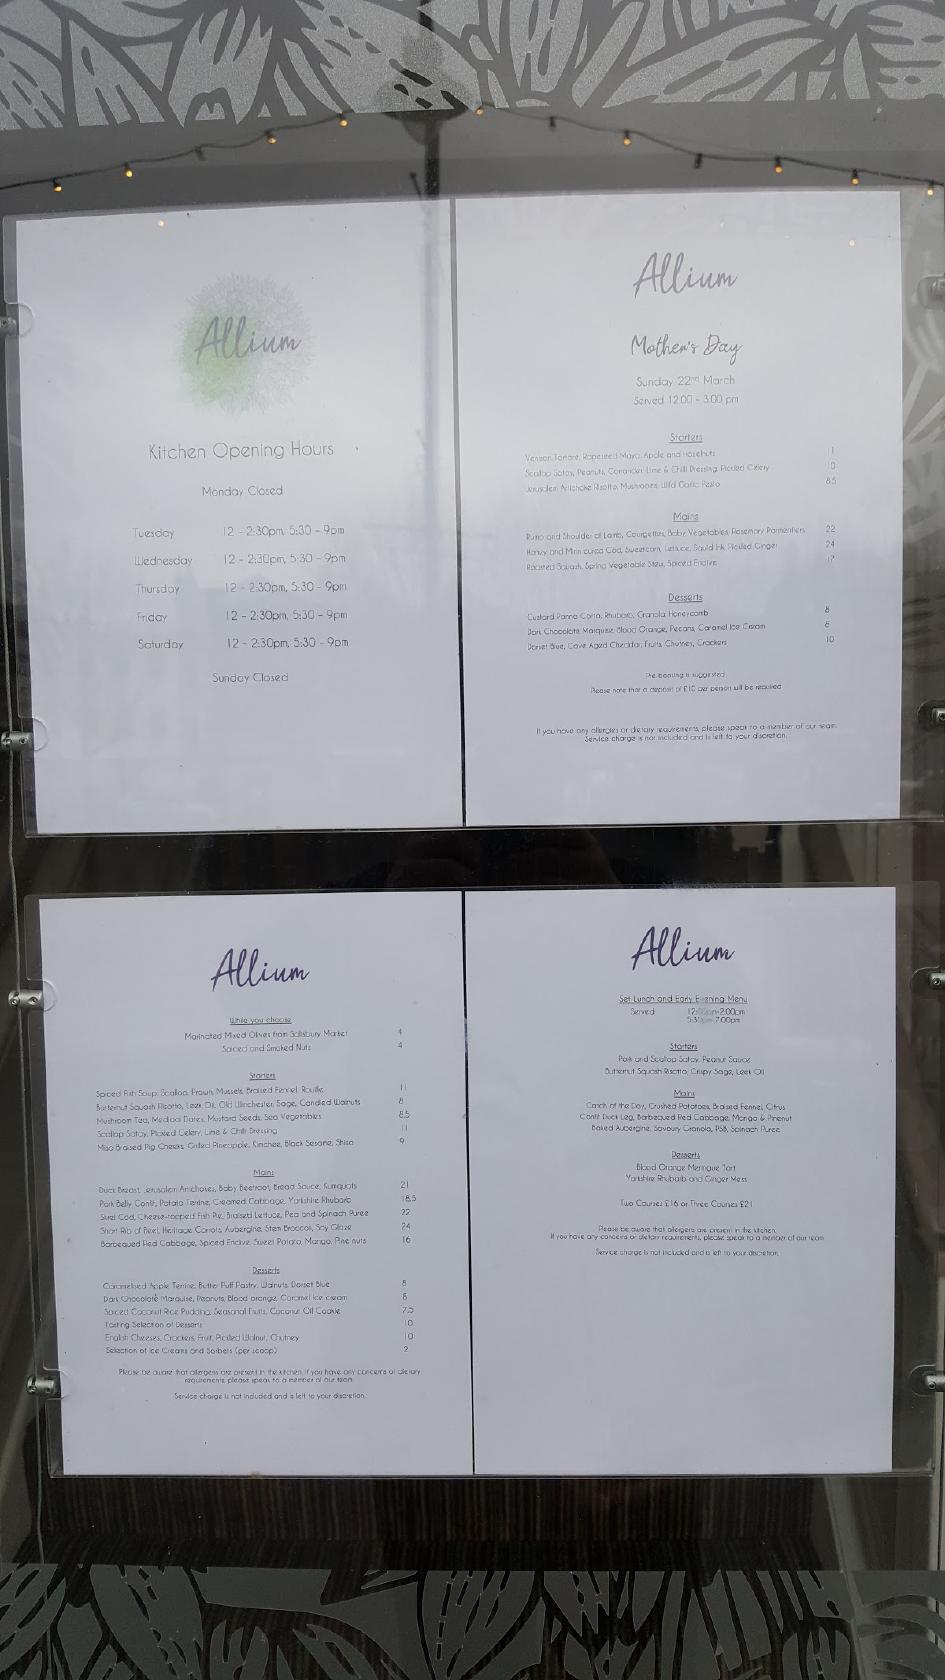 Allium
Kitchen Opening Hours
Monday Closed
Tuesday 12 - 2:30pm, 5:30 - 9pm
Wednesday 12 - 2:30pm, 5:30 - 9pm
Thursday 12 - 2:30pm, 5:30 - 9pm
Friday 12 - 2:30pm, 5:30 - 9pm
Saturday 12 - 2:30pm, 5:30 - 9pm
Sunday Closed
Allium
Mother's Day
Sunday 22nd March
Served 12.00 - 3.00 pm
Starters
Venison Tartare, Rapeseed Mayo, Apple and Hazelnuts 11
Scallop Satay, Peanuts, Coriander, Lime & Chilli Dressing, Pickled Celery 10
Jerusalem Artichoke Risotto, Mushrooms, Wild Garlic Pesto 8.5
Mains
Rump and Shoulder of Lamb, Courgettes, Baby Vegetables, Rosemary Parmentiers 22
Honey and Mirin cured Cod, Sweetcorn, Lettuce, Squid Ink, Pickled Ginger 24
Roasted Squash, Spring Vegetable Stew, Spiced Endive 17
Desserts
Custard Panna Cotta, Rhubarb, Granola, Honeycomb 8
Dark Chocolate Marquise, Blood Orange, Pecans, Caramel Ice Cream 8
Dorset Blue, Cave Aged Cheddar, Fruits, Chutney, Crackers 10
Pre-booking is suggested
Please note that a deposit of £10 per person will be required
If you have any allergies or dietary requirements, please speak to a member of our team.
Service charge is not included and is left to your discretion.
Allium
While you choose
Marinated Mixed Olives from Salisbury Market 4
Spiced and Smoked Nuts 4
Starters
Spiced Fish Soup, Scallop, Prawn, Mussels, Braised Fennel, Rouille 11
Butternut Squash Risotto, Leek Oil, Old Winchester, Sage, Candied Walnuts 8
Mushroom Tea, Medjool Dates, Mustard Seeds, Sea Vegetables 8.5
Scallop Satay, Pickled Celery, Lime & Chilli Dressing 11
Miso Braised Pig Cheeks, Grilled Pineapple, Kimchee, Black Sesame, Shiso 9
Mains
Duck Breast, Jerusalem Artichokes, Baby Beetroot, Bread Sauce, Kumquats 21
Pork Belly Confit, Potato Terrine, Creamed Cabbage, Yorkshire Rhubarb 18.5
Skrei Cod, Cheese-topped Fish Pie, Braised Lettuce, Pea and Spinach Puree 22
Short Rib of Beef, Heritage Carrots, Aubergine, Stem Broccoli, Soy Glaze 24
Barbequed Red Cabbage, Spiced Endive, Sweet Potato, Mango, Pine nuts 16
Desserts
Caramelised Apple Terrine, Butter Puff Pastry, Walnuts, Dorset Blue 8
Dark Chocolate Marquise, Peanuts, Blood orange, Caramel Ice cream 8
Spiced Coconut Rice Pudding, Seasonal Fruits, Coconut Oil Cookie 7.5
Tasting Selection of Desserts 10
English Cheeses, Crackers, Fruit, Pickled Walnut, Chutney 10
Selection of Ice Creams and Sorbets (per scoop) 2
Please be aware that allergens are present in the kitchen. If you have any concerns or dietary
requirements, please speak to a member of our team.
Service charge is not included and is left to your discretion.
Allium
Set Lunch and Early Evening Menu
Served 12:00pm-2:00pm
5:30pm-7:00pm
Starters
Pork and Scallop Satay, Peanut Sauce
Butternut Squash Risotto, Crispy Sage, Leek Oil
Mains
Catch of the Day, Crushed Potatoes, Braised Fennel, Citrus
Confit Duck Leg, Barbequed Red Cabbage, Mango & Pinenut
Baked Aubergine, Savoury Granola, PSB, Spinach Puree
Desserts
Blood Orange Meringue Tart
Yorkshire Rhubarb and Ginger Mess
Two Courses £16 or Three Courses £21
Please be aware that allergens are present in the kitchen.
If you have any concerns or dietary requirements, please speak to a member of our team.
Service charge is not included and is left to your discretion.